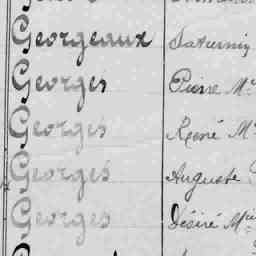 Georgeaux Saturnin
Georges Pierre M
Georges René M
Georges Auguste
Georges Désiré M